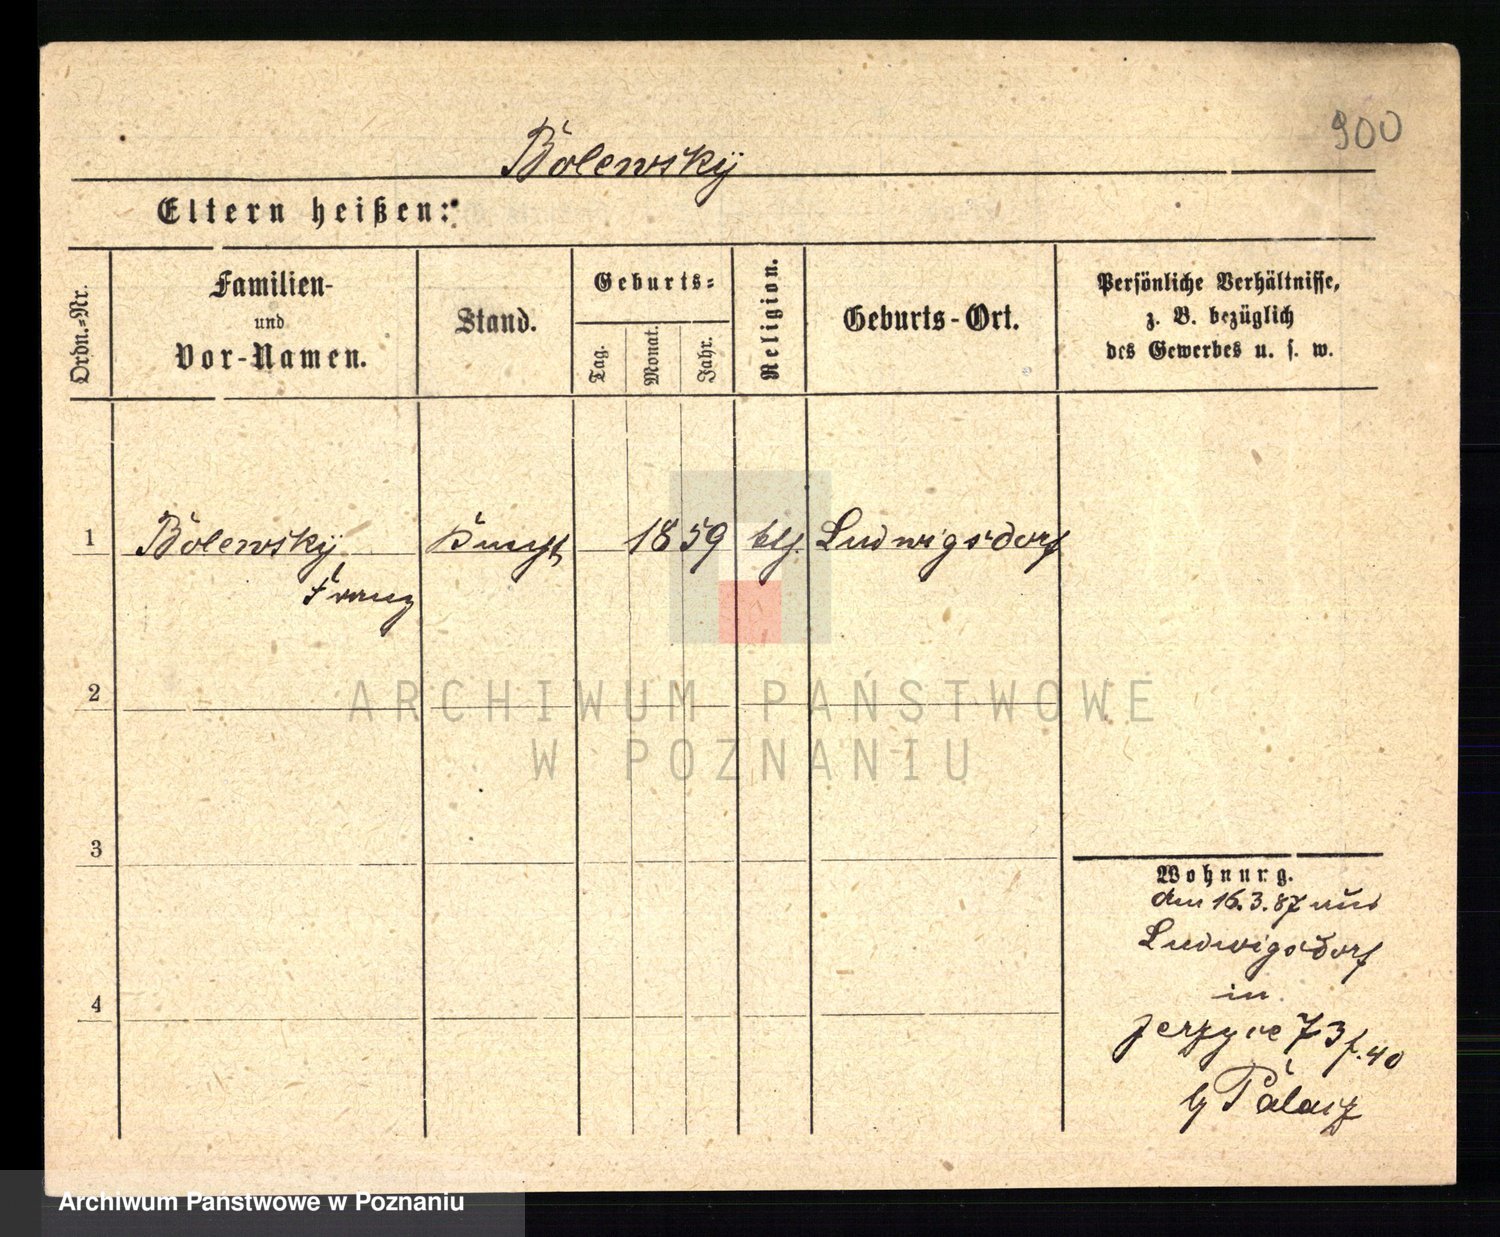 900
Bolewskÿ
Eltern heißen:
Ordn.=Nr.
Familien-
und
Vor-Namen.
Stand.
Geburts=
Tag.
Monat.
Jahr.
Religion.
Geburts-Ort.
Persönliche Verhältnisse,
z. B. bezüglich
des Gewerbes u. s. w.
1 Bolewskÿ Knecht 1859 Ludwigsdorf
Franz
2
3
4
Wohnung.
am 16.3.87 aus
Ludwigsdorf
in
Jerzyce 73 f. 40
Palacz
ARCHIWUM PAŃSTWOWE
W POZNANIU
Archiwum Państwowe w Poznaniu